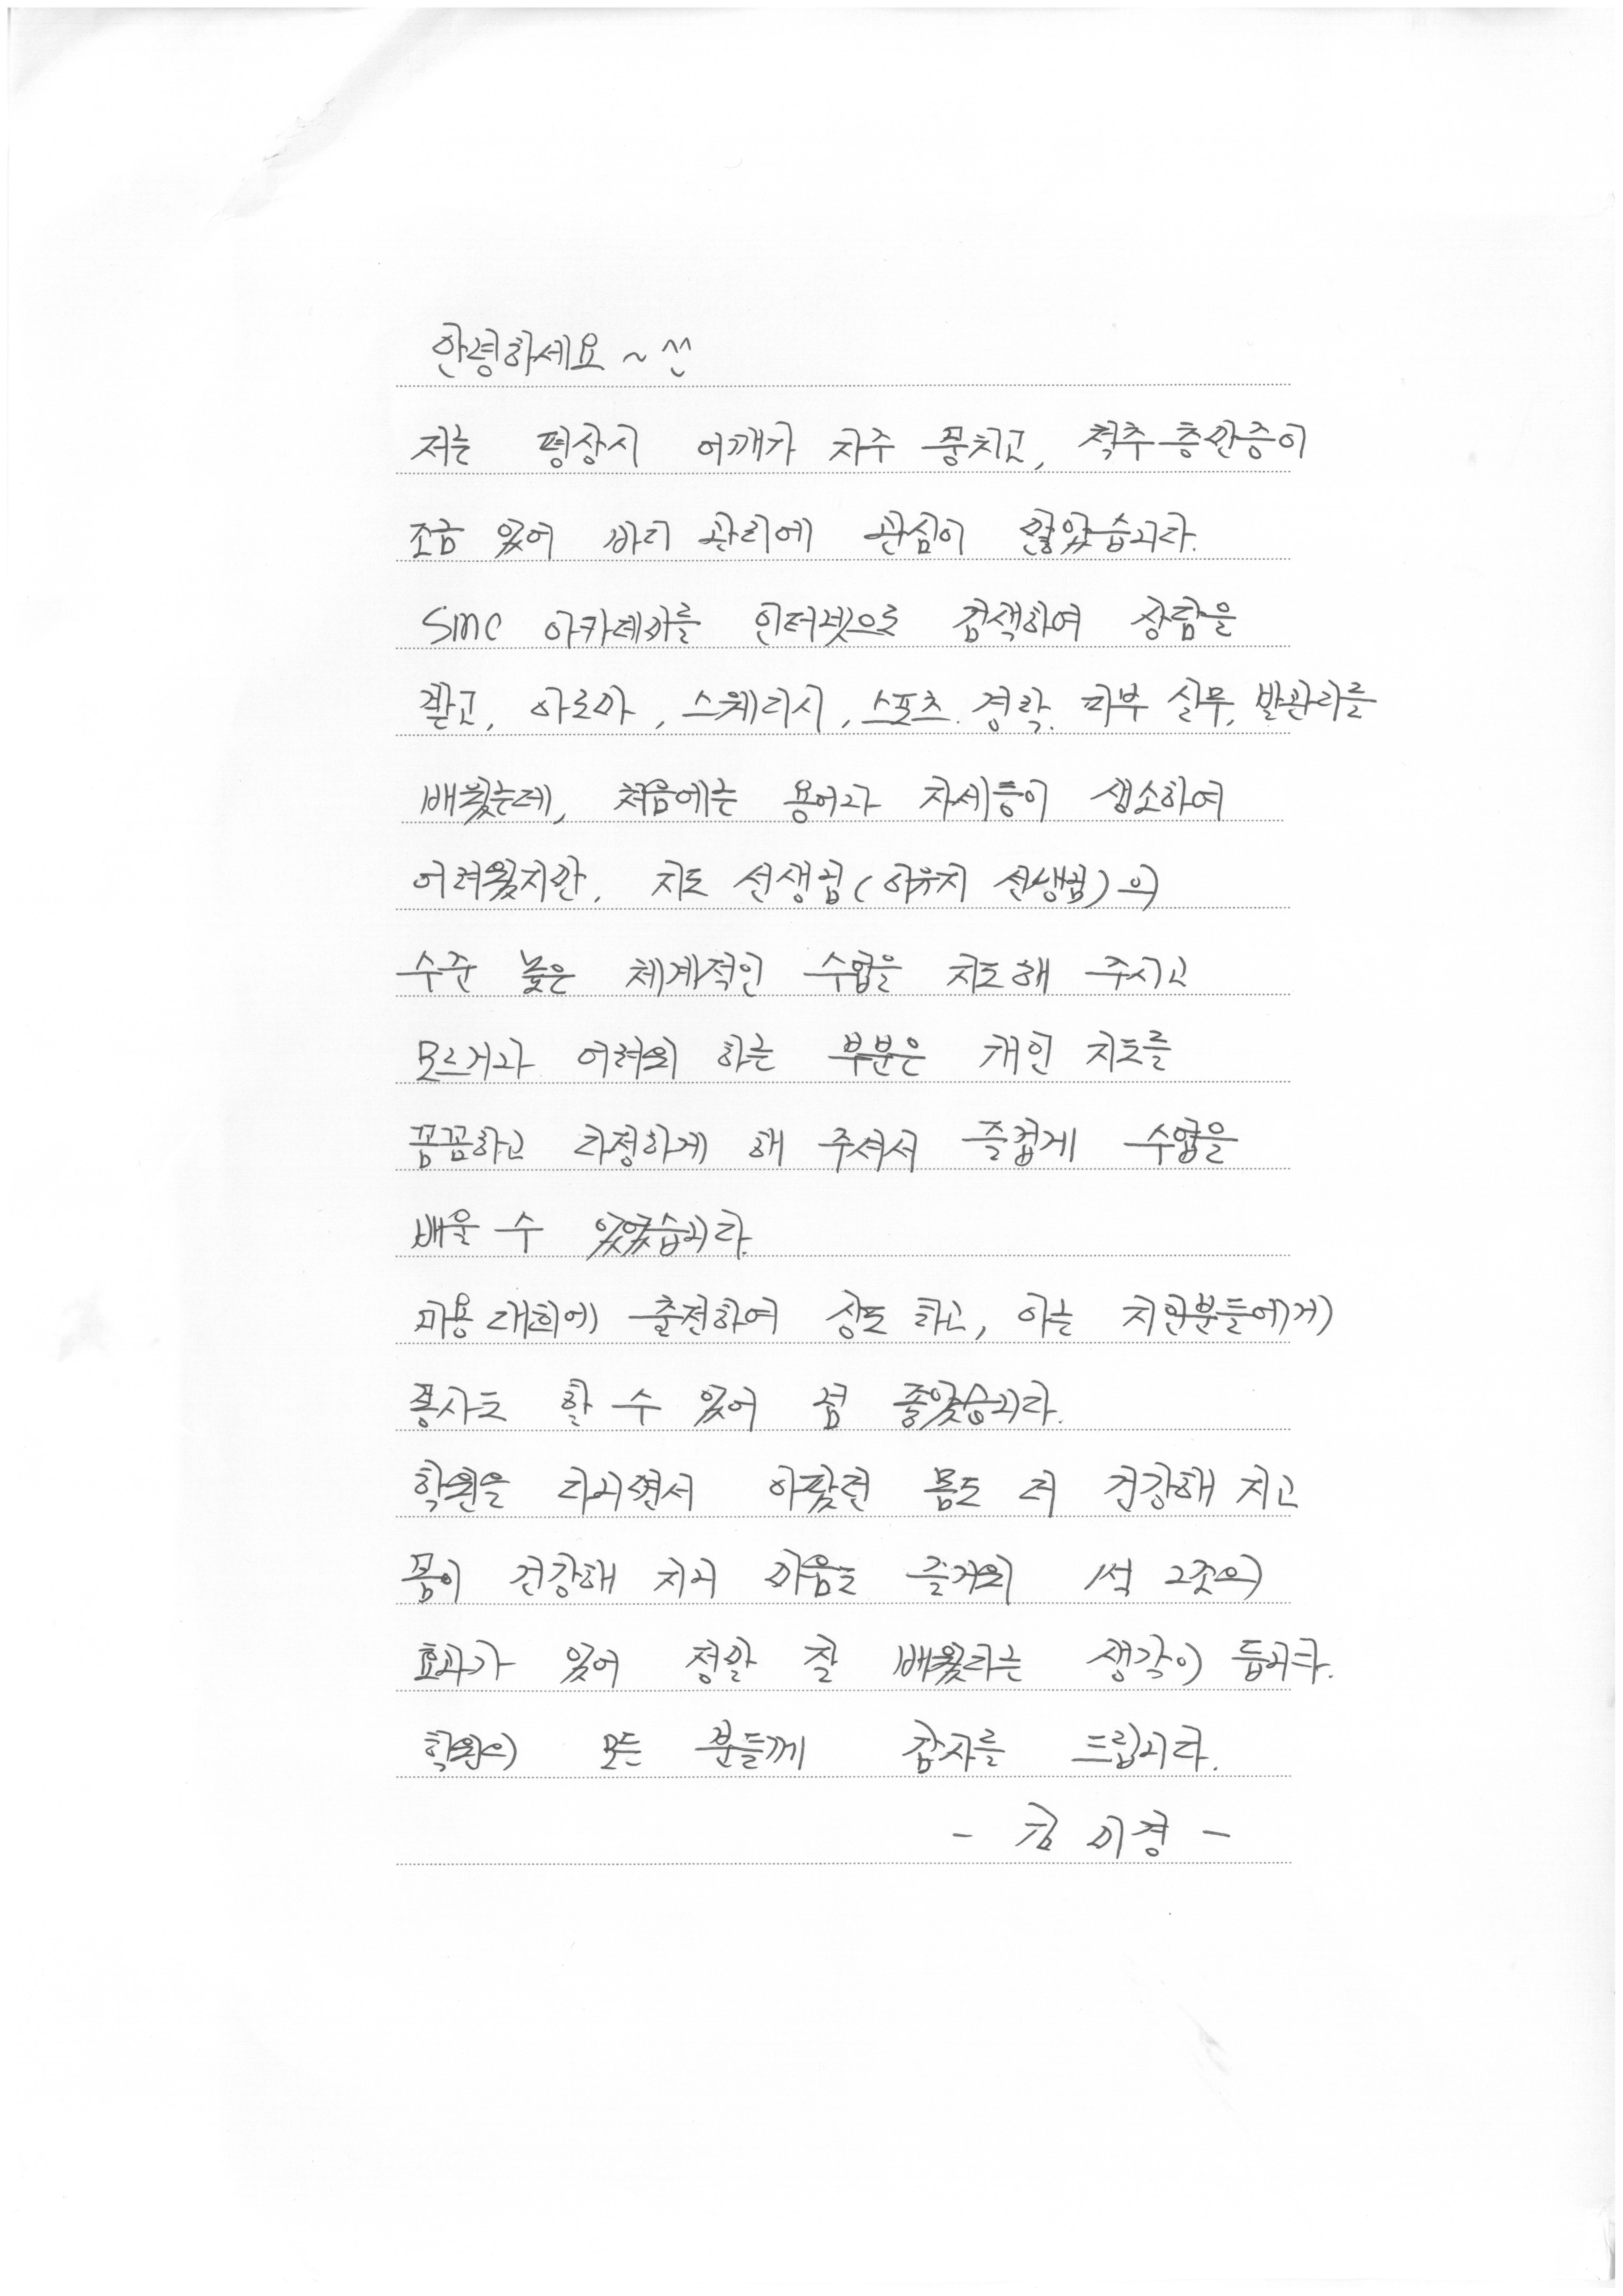 안녕하세요 ~ ^^
저는 평상시 어깨가 자주 뭉치고, 척추층만증이
조금 있어 바디 관리에 관심이 많았습니다.
SMC 아카데미를 인터넷으로 검색하여 상담을
받고, 아로마, 스웨디시, 스포츠. 경락. 피부 실무, 발관리를
배웠는데, 처음에는 용어나 자세등이 생소하여
어려웠지만, 지도 선생님(이유지 선생님)의
수준 높은 체계적인 수업을 지도해 주시고
모르거나 어려워 하는 부분은 개인 지도를
꼼꼼하고 다정하게 해 주셔서 즐겁게 수업을
배울 수 있었습니다.
미용대회에 출전하여 상도 타고, 아는 지인분들에게
봉사도 할 수 있어 넘 좋았습니다.
학원을 다니면서 아팠던 몸도 더 건강해 지고
몸이 건강해 지니 마음도 즐거워 1석 2조의
효과가 있어 정말 잘 배웠다는 생각이 듭니다.
학원의 모든 분들께 감사를 드립니다.
- 김미경 -